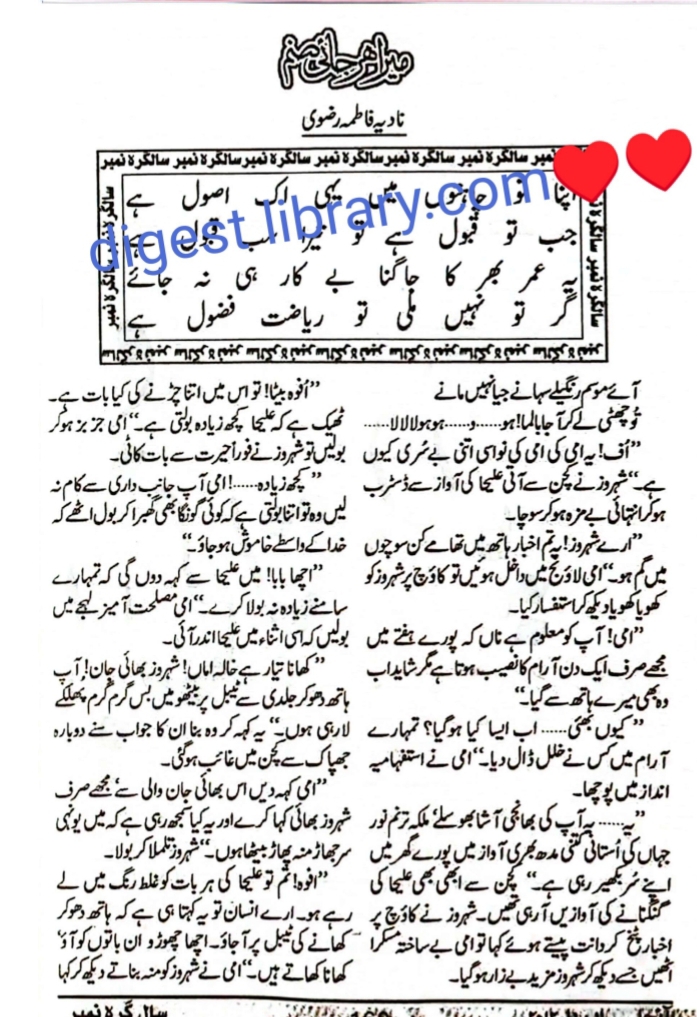 میرا ہرجائی صنم
نادیہ فاطمہ رضوی
سالگرہ نمبر سالگرہ نمبر سالگرہ نمبر سالگرہ نمبر سالگرہ نمبر سالگرہ نمبر
اپنا تو چاہتوں میں یہی اک اصول ہے
جب تو قبول ہے تو تیرا سب قبول ہے
یہ عمر بھر کا جاگنا بے کار ہی نہ جائے
گر تو نہیں ملی تو ریاضت فضول ہے
digest library.com
آئے موسم رنگیلے سہانے جیا نہیں مانے
تُو چھٹی لے کر آجا بالما! ہو......و......ہو ہو لا لا لا......
”اُف! یہ امی کی امی کی نواسی اتنی بے سُری کیوں
ہے۔“ شہروز نے کچن سے آتی علیحا کی آواز سے ڈسٹرب
ہو کر انتہائی بے مزہ ہو کر سوچا۔
”ارے شہروز! یہ تم اخبار ہاتھ میں تھامے کن سوچوں
میں گم ہو۔“ امی لاؤنج میں داخل ہوئیں تو کاؤچ پر شہروز کو
کھویا کھویا دیکھ کر استفسار کیا۔
”امی! آپ کو معلوم ہے ناں کہ پورے ہفتے میں
مجھے صرف ایک دن آرام کا نصیب ہوتا ہے مگر شاید اب
وہ بھی میرے ہاتھ سے گیا۔“
”کیوں بھئی...... اب ایسا کیا ہوگیا؟ تمہارے
آرام میں کس نے خلل ڈال دیا۔“ امی نے استفہامیہ
انداز میں پوچھا۔
”یہ...... یہ آپ کی بھانجی آشا بھوسلے‘ ملکہ ترنم نور
جہاں کی اُستانی کتنی مدھ بھری آواز میں پورے گھر میں
اپنے سُر بکھیر رہی ہے۔“ کچن سے ابھی بھی علیحا کی
گنگنانے کی آوازیں آرہی تھیں۔ شہروز نے کاؤچ پر
اخبار پٹخ کر دانت پیستے ہوئے کہا تو امی بے ساختہ مسکرا
اٹھیں جسے دیکھ کر شہروز مزید بے زار ہوگیا۔
”اُفوہ بیٹا! تو اس میں اتنا چڑنے کی کیا بات ہے۔
ٹھیک ہے کہ علیحا کچھ زیادہ بولتی ہے۔“ امی جزبز ہو کر
بولیں تو شہروز نے فوراً حیرت سے بات کاٹی۔
”کچھ زیادہ......! امی آپ جانب داری سے کام نہ
لیں وہ تو اتنا بولتی ہے کہ کوئی گونگا بھی گھبرا کر بول اٹھے کہ
خدا کے واسطے خاموش ہو جاؤ۔“
”اچھا بابا! میں علیحا سے کہہ دوں گی کہ تمہارے
سامنے زیادہ نہ بولا کرے۔“ امی مصلحت آمیز لہجے میں
بولیں کہ اسی اثناء میں علیحا اندر آئی۔
”کھانا تیار ہے خالہ اماں! شہروز بھائی جان! آپ
ہاتھ دھو کر جلدی سے ٹیبل پر بیٹھو میں بس گرم گرم پھلکے
لا رہی ہوں۔“ یہ کہہ کر وہ بنا ان کا جواب سنے دوبارہ
جھپاک سے کچن میں غائب ہوگئی۔
”امی کہہ دیں اس بھائی جان والی سے‘ مجھے صرف
شہروز بھائی کہا کرے اور یہ کیا سمجھ رہی ہے کہ میں یونہی
سر جھاڑ منہ پھاڑ بیٹھا ہوں۔“ شہروز تلملا کر بولا۔
”افوہ! تم تو علیحا کی ہر بات کو غلط رنگ میں لے
رہے ہو۔ ارے انسان تو یہ کہتا ہی ہے کہ ہاتھ دھو کر
کھانے کی ٹیبل پر آجاؤ۔ اچھا چھوڑو ان باتوں کو آؤ‘
کھانا کھاتے ہیں۔“ امی نے شہروز کو منہ بناتے دیکھ کر کہا
سالگرہ نمبر